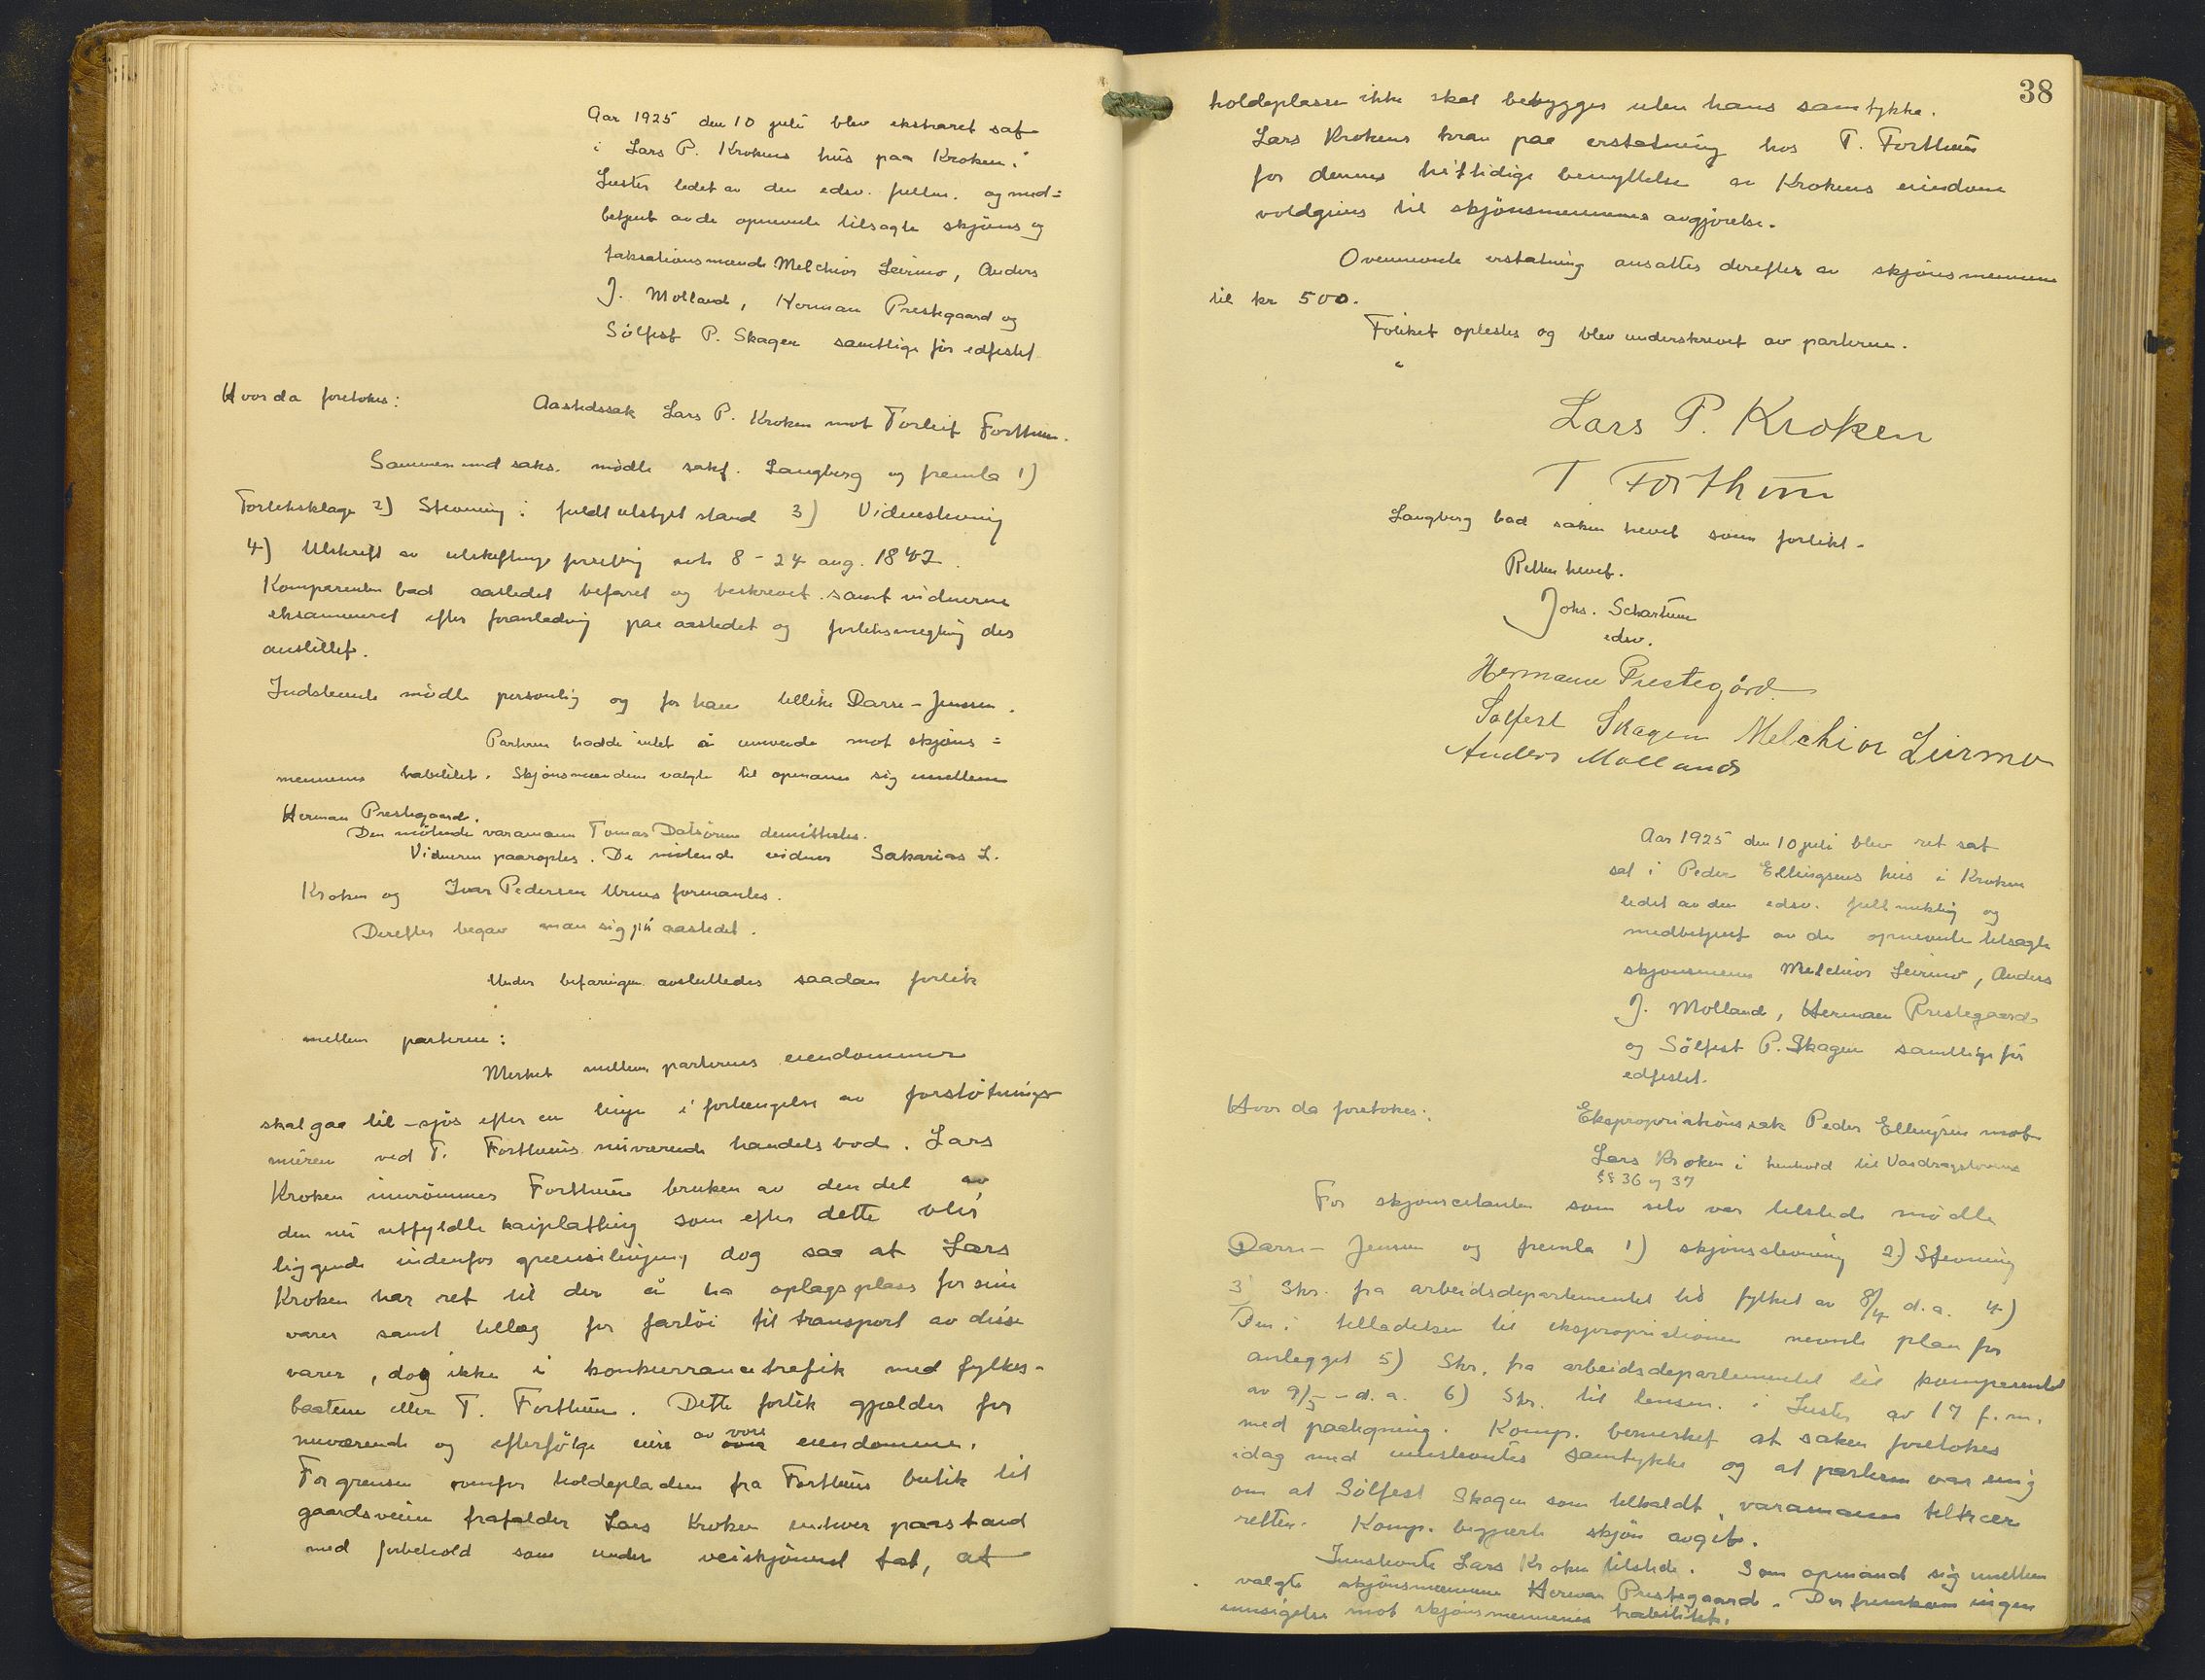 Aar 1925 den 10 juli blev ekstraret sat
i Lars P. Krokens hus paa Kroken i
Luster ledet av den edsv. fullm. og med=
betjent av de opnevnte tilsagte skjøns og
taksationsmænd Melchior Leirmo, Anders
J. Molland, Herman Prestegaard og
Sølfest P. Skagen samtlige før edfestet
Hvor da foretokes:
Aastedssak Lars P. Kroken mot Torleif Forthun.
Sammen med saks. mødte sakf. Langberg og fremla 1)
Forliksklage 2) Stevning i fuldt utstyrt stand 3) Vidnestevning
4) Utskrift av utskiftnings forretning avh 8 - 24 aug. 1847.
Komparenten bad aastedet befaret og beskrevet samt vidnerne
eksamineret efter foranledning paa aastedet og forliksmegling der
anstillet.
Indstevnte mødte personlig og for ham tillike Darre-Jenssen.
Parterne hadde intet å innvende mot skjøns=
mennenes habilitet. Skjønsmændene valgte til opmann sig imellem
Herman Prestegaard.
Den møtende varamann Tomas Dalsøren demitteredes.
Vidneren paaroptes. De møtende vidner Sakarias L.
Kroken og Ivar Pedersen Urnes formantes.
Derefter begav man sig på aastedet.
Under befaringen avsluttedes saadan forlik
mellem parterne:
Merket mellem parternes eiendommer
skal gaa til sjøs efter en linje i forlængelse av forstøtnings
muren ved T. Forthuns nuværende handelsbod. Lars
Kroken innrømmes Forthun bruken av den del av
den nu utfyldte kaiplatting som efter dette blir
liggende indenfor grenselinjen, dog saa at Lars
Kroken har ret til der å ha oplagsplass for sine
varer samt tillæg for fartøi til transport av disse
varer, dog ikke i konkurrancetrafik med fylkes-
baatene eller T. Forthun. Dette forlik gjælder for
nuværende og efterfølge eiere av vore eiendomme.
For grensen ovenfor holdepladsen fra Forthuns butik til
gaardsveien frafalder Lars Kroken enhver paastand
med forbehold som under veiskjønnet tat, at
38
holdeplassen ikke skal bebygges uten hans samtykke.
Lars Krokens krav paa erstatning hos T. Forthun
for dennes hittidige benyttelse av Krokens eiendom
voldgives til skjønsmennenes avgjørelse.
Ovennevnte erstatning ansattes derefter av skjønsmennene
til kr 500.
Forliket oplestes og blev underskrevet av parterne.
Lars P. Kroken
T Forthun
Langberg bad saken hevet som forlikt.
Retten hevet.
Johs. Schartum
edsv.
Hermann Prestegård
Solfest Skagen Melchior Leirmo
Anders Molland
Aar 1925 den 10 juli blev ret sat
sat i Peder Ellingsens hus i Kroken
ledet av den edsv. fullmektig og
medbetjent av de opnevnte tilsagte
skjønsmenn Melchior Leirmo, Anders
J. Molland, Herman Prestegaard
og Sølfest P. Skagen samtlige før
edfestet.
Hvor da foretokes:
Ekspropriationssak Peder Ellingsen mot
Lars Kroken i henhold til Vasdragslovens
§§ 36 og 37
For skjønscitanten som selv var tilstede mødte
Darre-Jenssen og fremla 1) skjønsstevning 2) Stevning
3) Skr. fra arbeidsdepartementet til fylket av 8/4 d.a. 4)
Den i tilladelsen til ekspropriationen nevnte plan for
anlegget 5) Skr. fra arbeidsdepartementet til komparenten
av 9/5 d.a. 6) Skr. til lensm. i Luster av 17 f.m.
med paategning. Komp. bemerket at saken foretokes
idag med innstevntes samtykke og at parterne var enig
om at Sølfest Skagen som tilkaldt varamann tiltræer
retten. Komp. begjærte skjøn avgit.
Innstevnte Lars Kroken tilstede. Som opmand sig imellem
valgte skjønsmennene Herman Prestegaard. Der fremkom ingen
innsigelse mot skjønsmennenes habilitet.